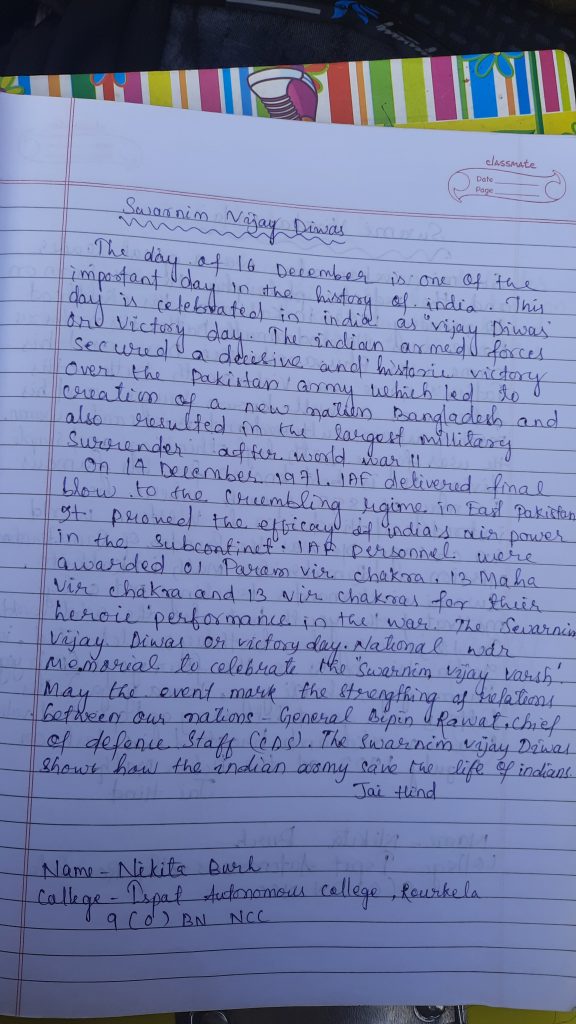 classmate
Date
Page
Swarnim Vijay Diwas
The day of 16 December is one of the
important day in the history of india. This
day is celebrated in india as "vijay Diwas
or victory day. The indian armed forces
secured a decisive and historic victory
over the pakistan army which led to
creation of a new nation Bangladesh and
also resulted in the largest millitary
surrender after world war II
On 14 December 1971. IAF delivered final
blow to the crumbling regime in East Pakistan
It proved the efficay of india's air power
in the subcontinet. IAF personnel were
awarded 01 Param vir chakra. 13 Maha
vir chakra and 13 vir chakras for their
heroic performance in the war. The Swarnim
vijay Diwas or victory day. National war
Memorial to celebrate the "swarnim vijay varsh".
May the event mark the strengthing of relations
between our nations - General Bipin Rawat, chief
of defence staff (CDS). The swarnim vijay Diwas
shows how the indian army save the life of indians.
Jai Hind
Name - Nikita
College - Ispat Autonomous college, Rourkela
9 (O) BN NCC